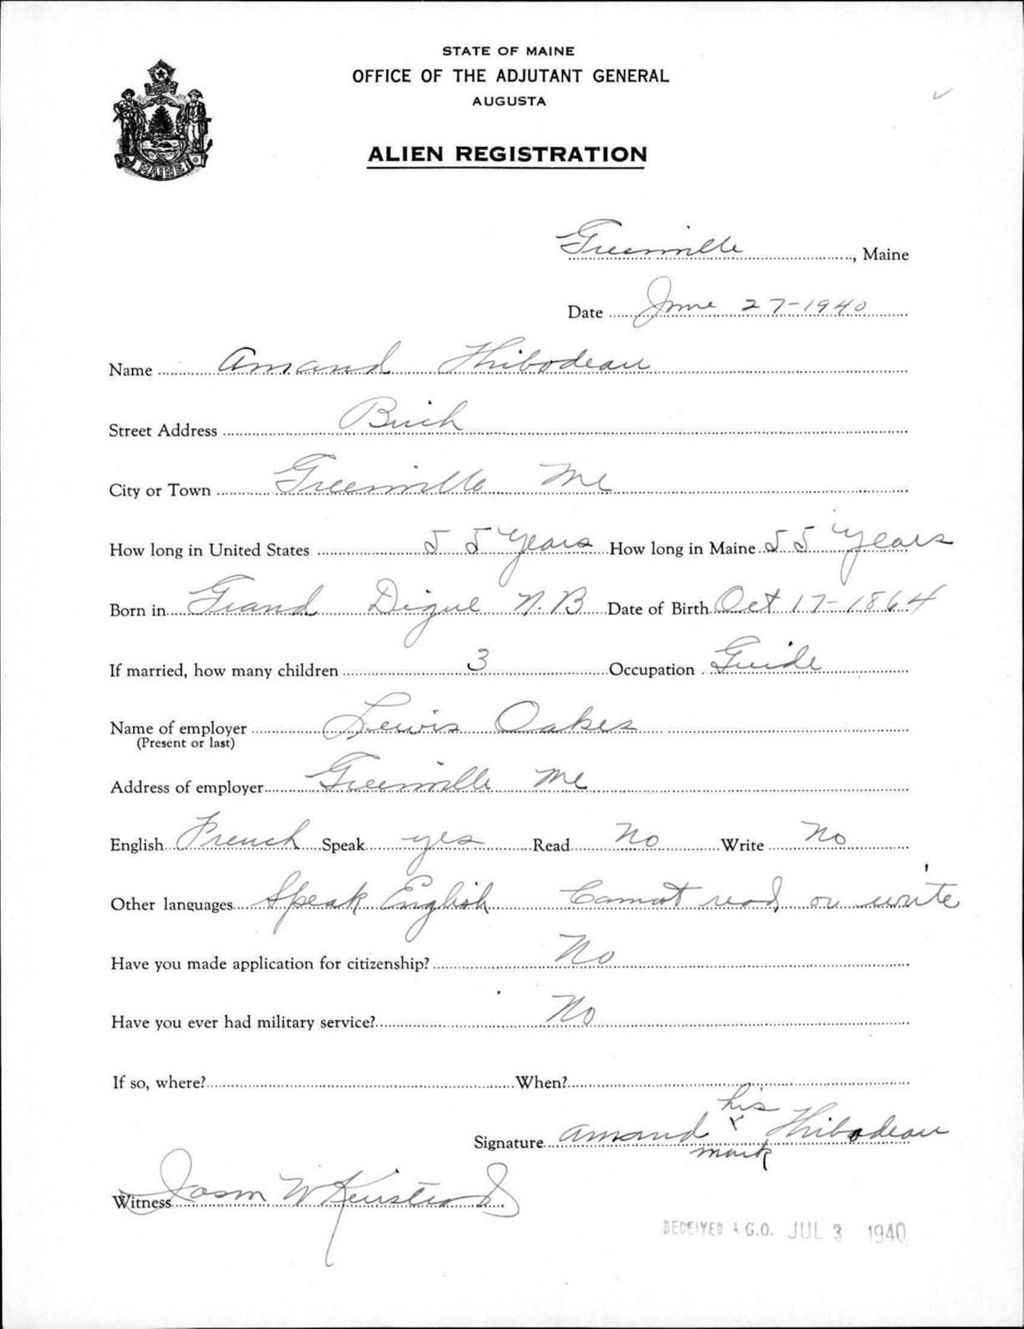 STATE OF MAINE
OFFICE OF THE ADJUTANT GENERAL
AUGUSTA
ALIEN REGISTRATION
MAINE
Greenville, Maine
Date June 27-1940
Name Amand Thibodeau
Street Address Birch
City or Town Greenville Me
How long in United States 55 years How long in Maine 55 years
Born in Grand Digue N.B Date of Birth Oct 17-1864
If married, how many children 3 Occupation Guide
Name of employer Lewis Oakes
(Present or last)
Address of employer Greenville Me
English French Speak yes Read No Write No
Other languages Speak English Cannot read or write
Have you made application for citizenship? No
Have you ever had military service? No
If so, where? When?
his
Signature Amand x Thibodeau
mark
Witness W
RECEIVED A.G.O. JUL 3 1940